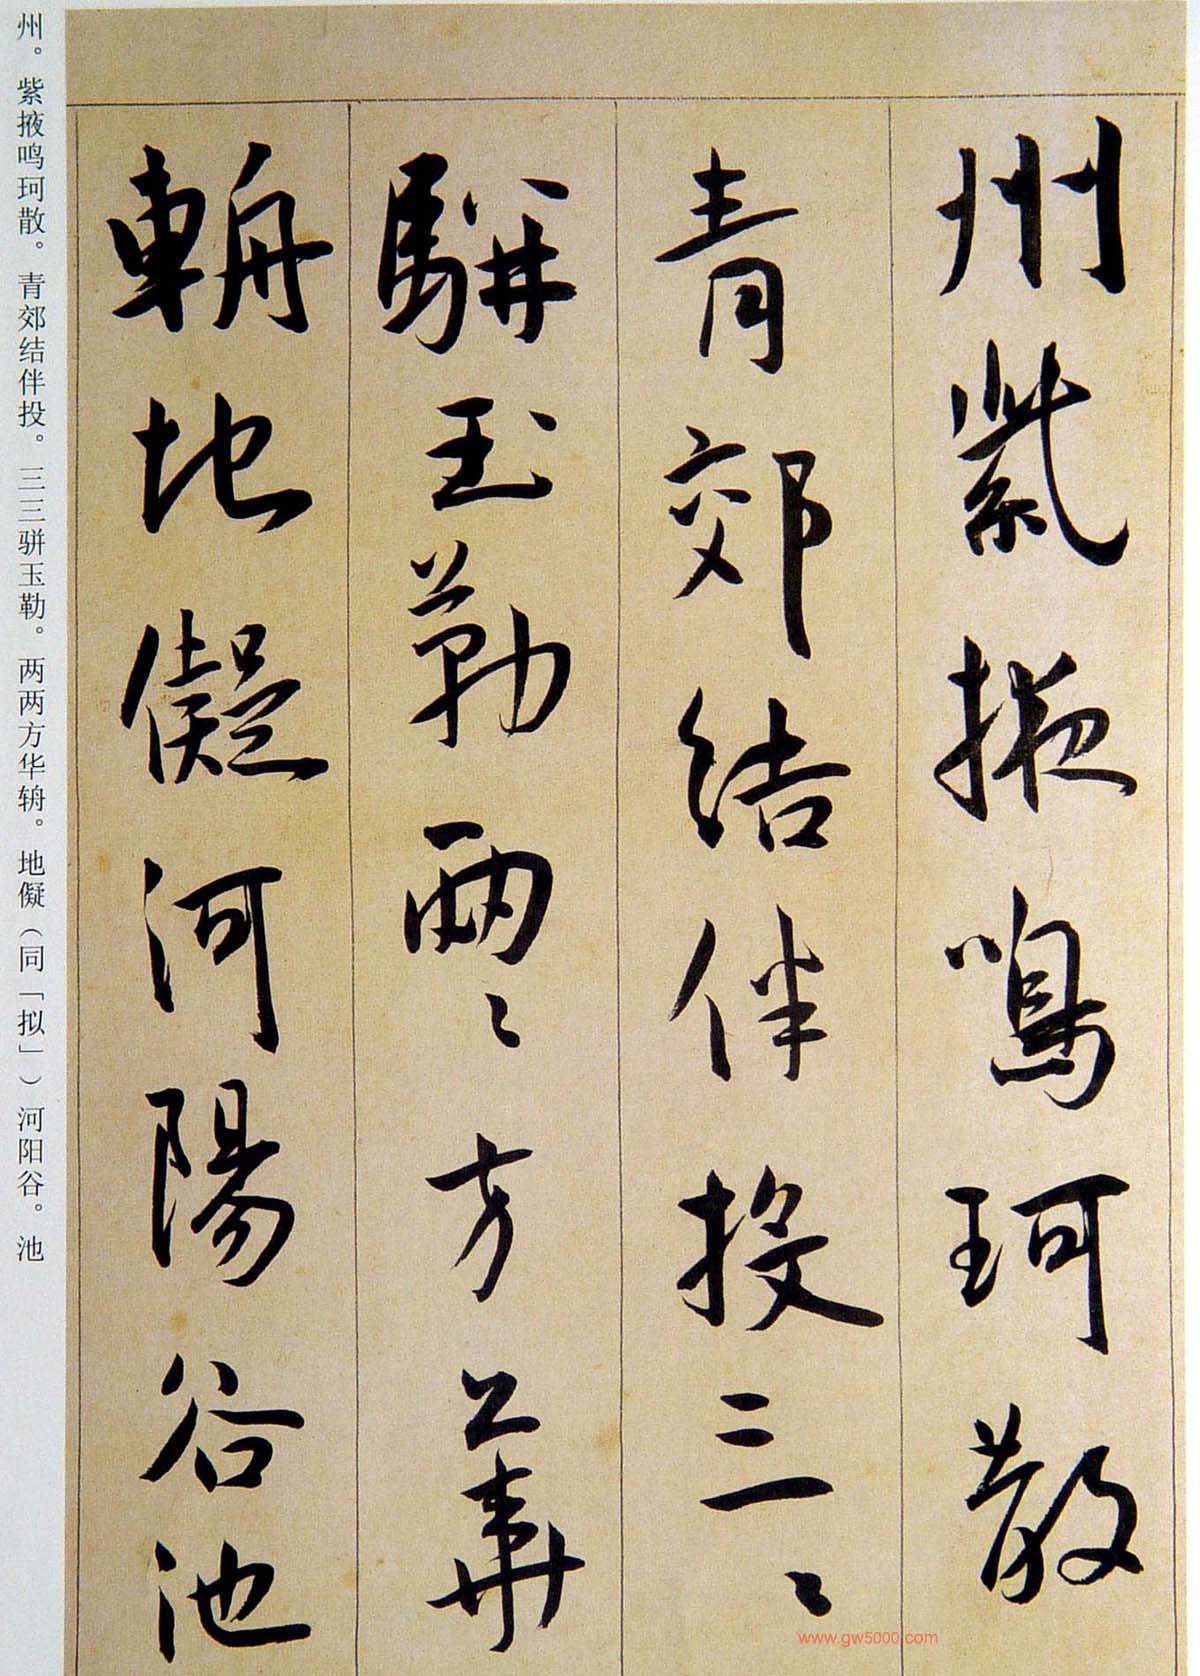 州紫掖鳴珂散
青郊结伴投三〻
駢玉勒兩〻方華
輈地儗河陽谷池
州。紫掖鸣珂散。青郊结伴投。三三骈玉勒。两两方华辀。地儗（同「拟」）河阳谷。池
www.gw5000.com